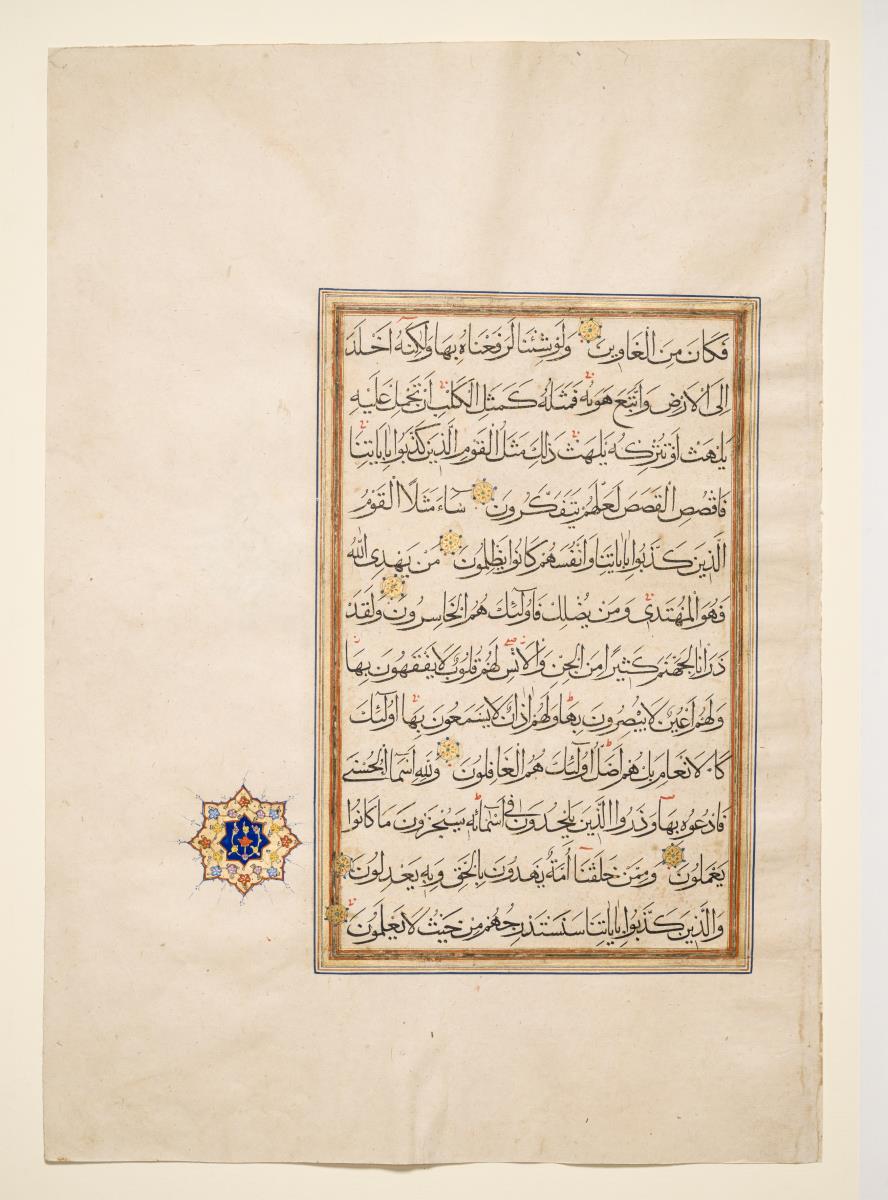 فَكَانَ مِنَ الْغَاوِينَ وَلَوْ شِئْنَا لَرَفَعْنَاهُ بِهَا وَلَٰكِنَّهُ أَخْلَدَ
إِلَى الْأَرْضِ وَاتَّبَعَ هَوٰيهُ فَمَثَلُهُ كَمَثَلِ الْكَلْبِ إِنْ تَحْمِلْ عَلَيْهِ
يَلْهَثْ أَوْ تَتْرُكْهُ يَلْهَثْ ذَلِكَ مَثَلُ الْقَوْمِ الَّذِينَ كَذَّبُوا بِآيَاتِنَا
فَاقْصُصِ الْقَصَصَ لَعَلَّهُمْ يَتَفَكَّرُونَ سَاءَ مَثَلًا الْقَوْمُ
الَّذِينَ كَذَّبُوا بِآيَاتِنَا وَأَنْفُسَهُمْ كَانُوا يَظْلِمُونَ مَنْ يَهْدِي اللَّهُ
فَهُوَ الْمُهْتَدِي وَمَنْ يُضْلِلْ فَأُولَٰئِكَ هُمُ الْخَاسِرُونَ وَلَقَدْ
ذَرَأْنَا لِجَهَنَّمَ كَثِيرًا مِنَ الْجِنِّ وَالْإِنْسِ لَهُمْ قُلُوبٌ لَا يَفْقَهُونَ بِهَا
وَلَهُمْ أَعْيُنٌ لَا يُبْصِرُونَ بِهَا وَلَهُمْ آذَانٌ لَا يَسْمَعُونَ بِهَا أُولَٰئِكَ
كَالْأَنْعَامِ بَلْ هُمْ أَضَلُّ أُولَٰئِكَ هُمُ الْغَافِلُونَ وَلِلَّهِ أَسْمَاءُ الْحُسْنَى
فَادْعُوهُ بِهَا وَذَرُوا الَّذِينَ يُلْحِدُونَ فِي أَسْمَائِهِ سَيُجْزَوْنَ مَا كَانُوا
يَعْمَلُونَ وَمِمَّنْ خَلَقْنَا أُمَّةٌ يَهْدُونَ بِالْحَقِّ وَبِهِ يَعْدِلُونَ
وَالَّذِينَ كَذَّبُوا بِآيَاتِنَا سَنَسْتَدْرِجُهُمْ مِنْ حَيْثُ لَا يَعْلَمُونَ